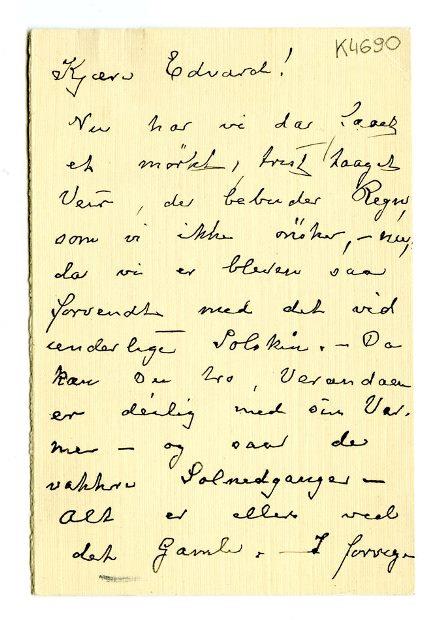 K4690
Kjære Edvard!
Nu har vi da faaet
et mörkt, trist taaget
Veir, der bebuder Regn,
som vi ikke önsker, – nu,
da vi er bleven saa
forvendte med det vid
underlige Solskin. – Du
kan Du tro, Verandaen
er deilig med sin Var-
me – og saa de
vakkre Solnedganger –
Alt er ellers ved
det Gamle. – I forrige